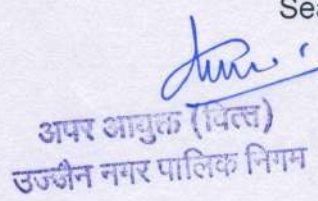 Sea
अपर आयुक्त (वित्त)
उज्जैन नगर पालिक निगम